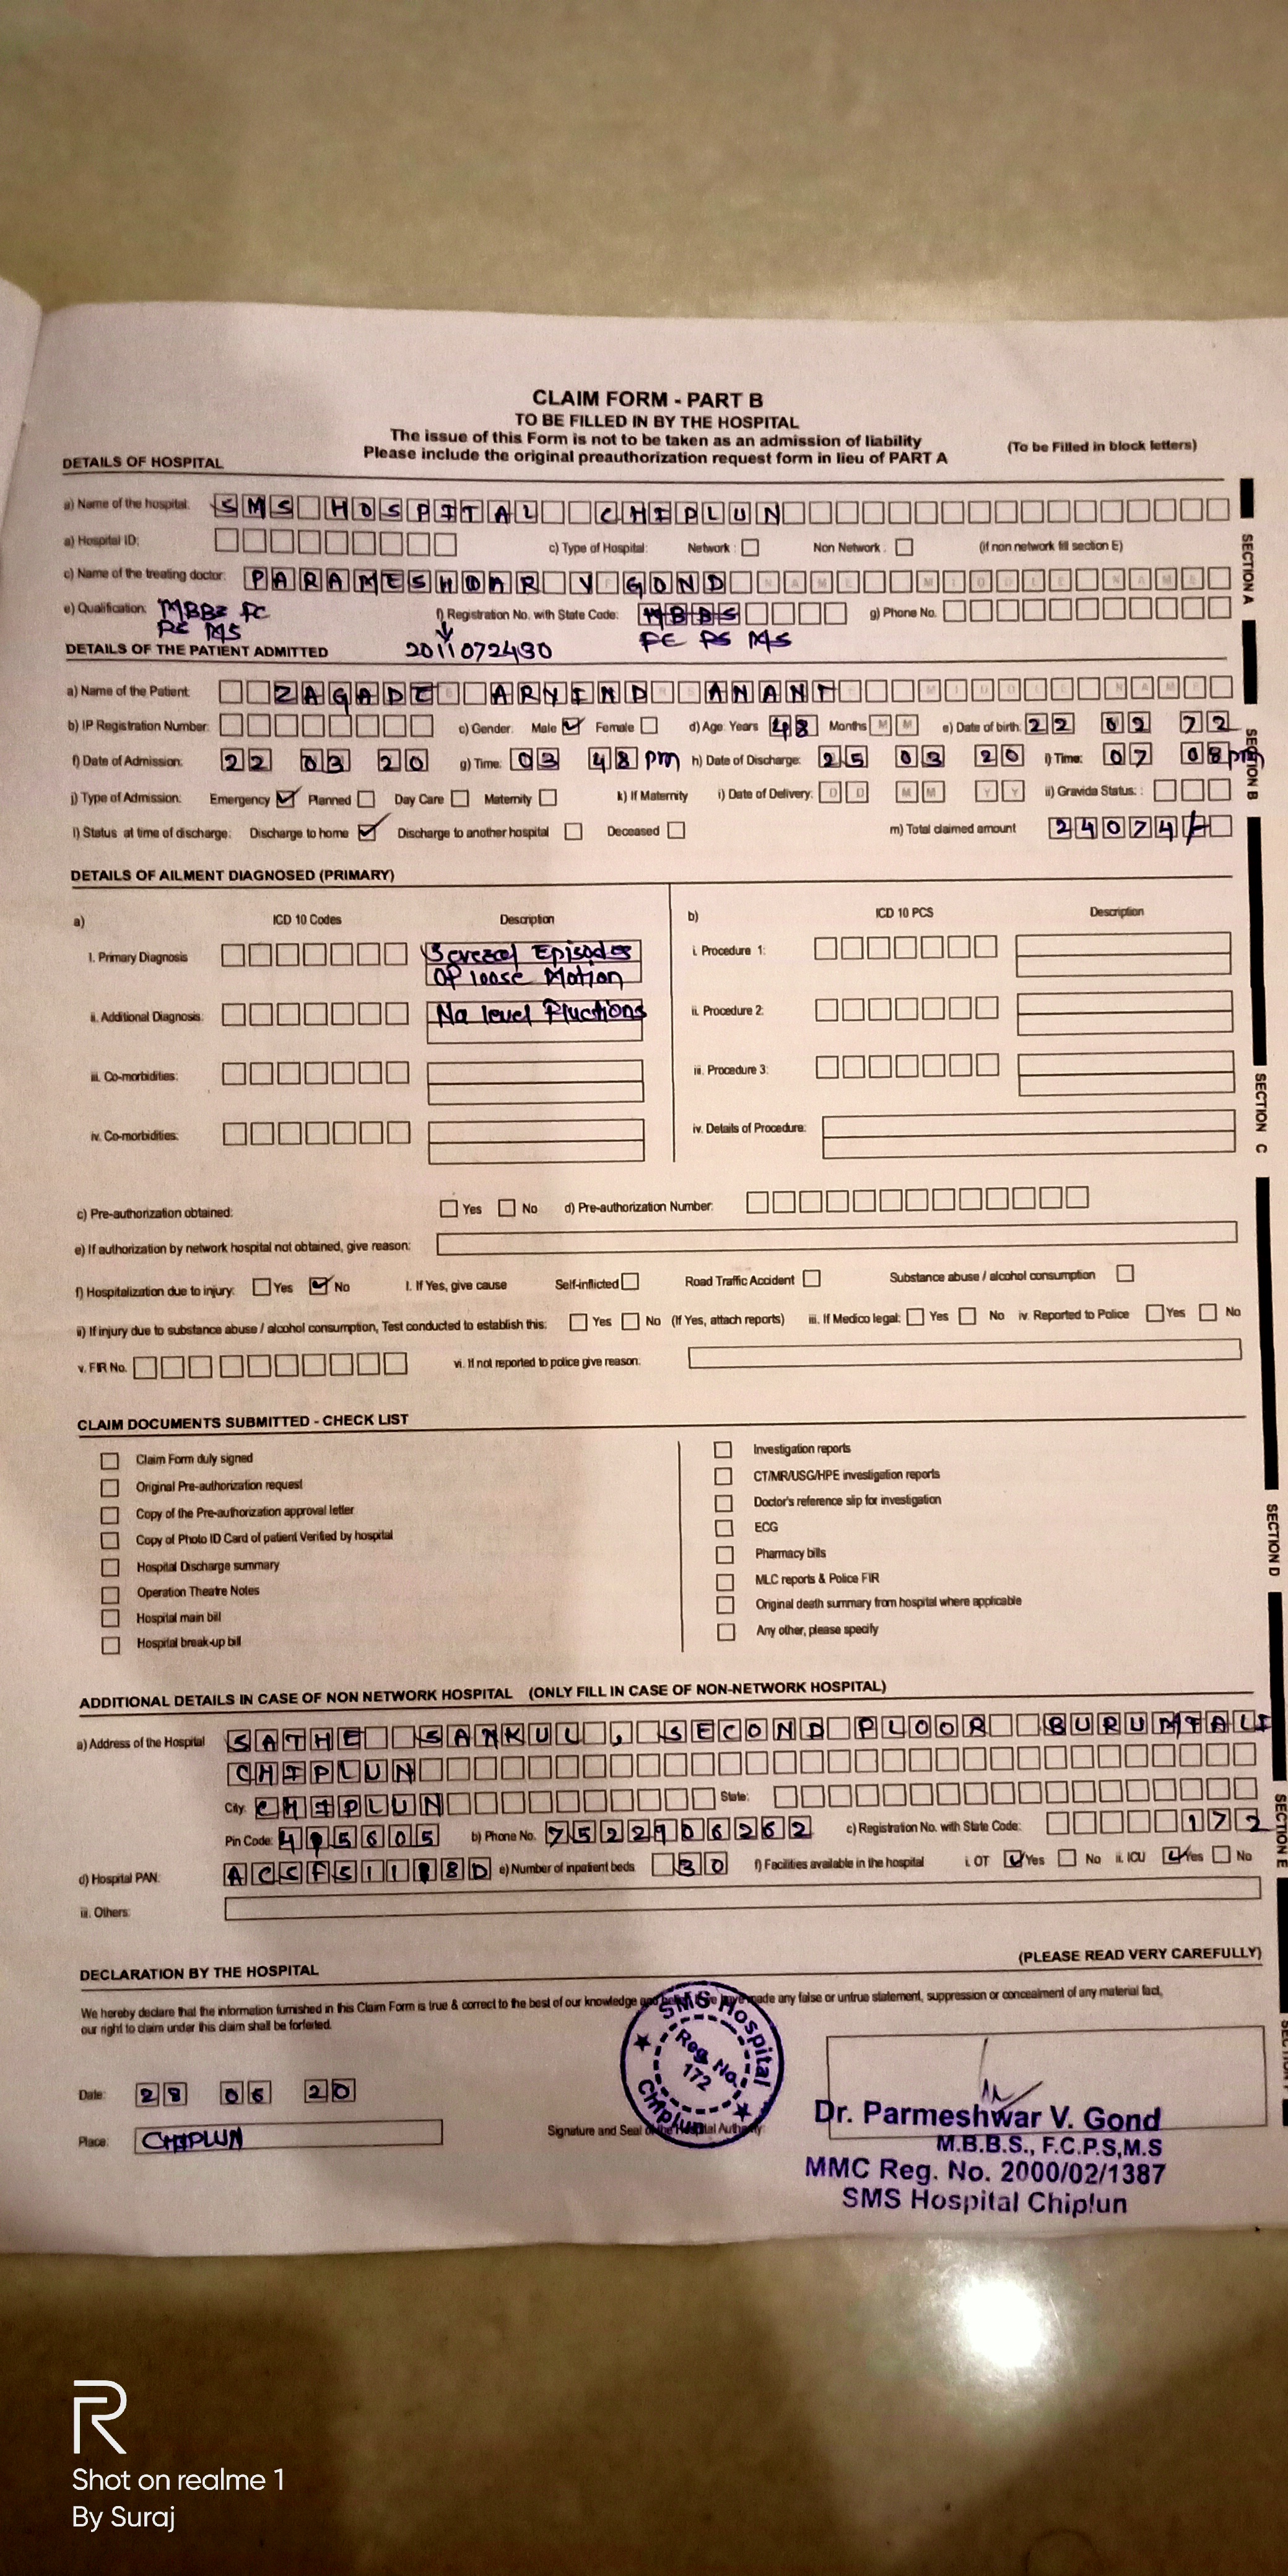 CLAIM FORM - PART B
TO BE FILLED IN BY THE HOSPITAL
The issue of this Form is not to be taken as an admission of liability
Please include the original preauthorization request form in lieu of PART A
(To be Filled in block letters)
DETAILS OF HOSPITAL
a) Name of the hospital: SMS HOSPITAL CHIPLUN
a) Hospital ID: c) Type of Hospital: Network : Non Network : (if non network fill section E)
c) Name of the treating doctor: PARAMESHOAR V GOND
e) Qualification: MBBS FC PS MS f) Registration No. with State Code: MBBS g) Phone No.
2011072430 FC PS MS
DETAILS OF THE PATIENT ADMITTED
a) Name of the Patient: ZAGADE ARVIND ANANT
b) IP Registration Number: c) Gender: Male Female d) Age: Years 48 Months M M e) Date of birth: 22 02 72
f) Date of Admission: 22 03 20 g) Time: 03 48 pm h) Date of Discharge: 25 03 20 i) Time: 07 08 pm
j) Type of Admission: Emergency Planned Day Care Maternity k) If Maternity i) Date of Delivery: D D M M Y Y ii) Gravida Status: :
l) Status at time of discharge: Discharge to home Discharge to another hospital Deceased m) Total claimed amount 24074/-
DETAILS OF AILMENT DIAGNOSED (PRIMARY)
a) ICD 10 Codes Description b) ICD 10 PCS Description
I. Primary Diagnosis Several Episodes Of loose Motion i. Procedure 1:
ii. Additional Diagnosis: Na level Fluctions ii. Procedure 2:
iii. Co-morbidities: iii. Procedure 3:
iv. Co-morbidities: iv. Details of Procedure:
c) Pre-authorization obtained: Yes No d) Pre-authorization Number:
e) If authorization by network hospital not obtained, give reason:
f) Hospitalization due to injury: Yes No I. If Yes, give cause Self-inflicted Road Traffic Accident Substance abuse / alcohol consumption
ii) If injury due to substance abuse / alcohol consumption, Test conducted to establish this: Yes No (If Yes, attach reports) iii. If Medico legal: Yes No iv. Reported to Police Yes No
v. FIR No. vi. If not reported to police give reason:
CLAIM DOCUMENTS SUBMITTED - CHECK LIST
Claim Form duly signed
Original Pre-authorization request
Copy of the Pre-authorization approval letter
Copy of Photo ID Card of patient Verified by hospital
Hospital Discharge summary
Operation Theatre Notes
Hospital main bill
Hospital break-up bill
Investigation reports
CT/MR/USG/HPE investigation reports
Doctor's reference slip for investigation
ECG
Pharmacy bills
MLC reports & Police FIR
Original death summary from hospital where applicable
Any other, please specify
ADDITIONAL DETAILS IN CASE OF NON NETWORK HOSPITAL (ONLY FILL IN CASE OF NON-NETWORK HOSPITAL)
a) Address of the Hospital SATHE SANKUL, SECOND FLOOR BURUMTALI
CHIPLUN
City: CHIPLUN State:
Pin Code: 415605 b) Phone No. 7522906262 c) Registration No. with State Code: 172
d) Hospital PAN: e) Number of inpatient beds 30 f) Facilities available in the hospital i. OT Yes No ii. ICU Yes No
iii. Others:
SECTION A
SECTION B
SECTION C
SECTION D
SECTION E
DECLARATION BY THE HOSPITAL (PLEASE READ VERY CAREFULLY)
We hereby declare that the information furnished in this Claim Form is true & correct to the best of our knowledge and made any false or untrue statement, suppression or concealment of any material fact,
our right to claim under this claim shall be forfeited.
SMS Hospital
Reg. No.
172
Chiplun
Date: 28 06 20
Place: CHIPLUN
Signature and Seal of the Hospital Authority
Dr. Parmeshwar V. Gond
M.B.B.S., F.C.P.S,M.S
MMC Reg. No. 2000/02/1387
SMS Hospital Chiplun
Shot on realme 1
By Suraj